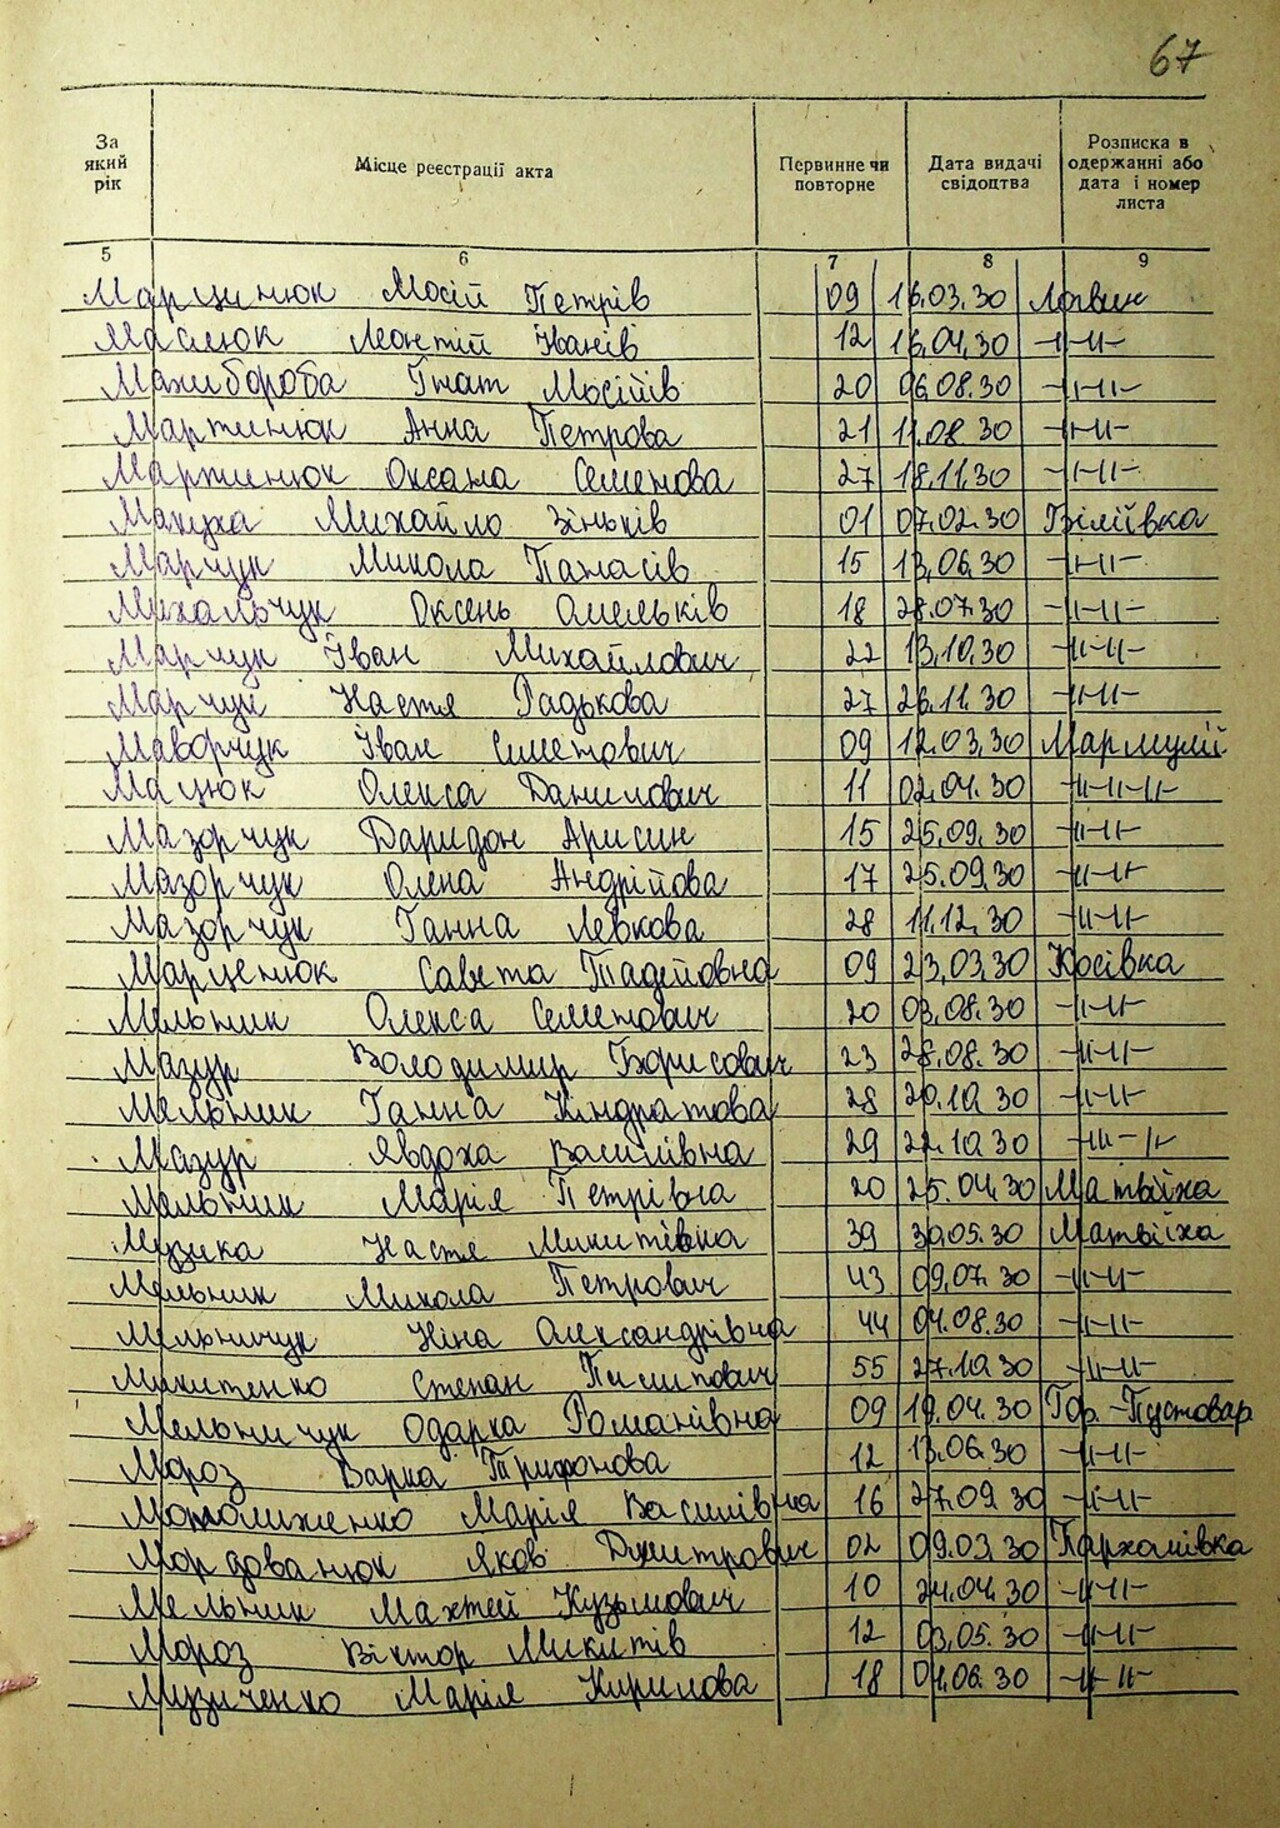 67
За який рік
Місце реєстрації акта
Первинне чи повторне
Дата видачі свідоцтва
Розписка в одержанні або дата і номер листа
5 6 7 8 9
Марцинюк Мосій Петрів 09 16.03.30 Логвин
Маслюк Леонтій Іванів 12 16.04.30 -"-"-
Махиборода Гнат Мосійів 20 06.08.30 -"-"-
Мартинюк Анна Петрова 21 11.08.30 -"-"-
Мартинюк Оксана Семенова 27 18.11.30 -"-"-
Макуха Михайло Зіньків 01 07.02.30 Біліївка
Марчук Микола Панасів 15 13.06.30 -"-"-
Михальчук Оксень Омельків 18 28.07.30 -"-"-
Марчук Іван Михайлович 22 13.10.30 -"-"-
Марчук Настя Радькова 27 26.11.30 -"-"-
Маворчук Іван Семенович 09 12.03.30
Мацюк Олекса Данилович 11 02.04.30 -"-"-"-
Мазорчук 15 25.09.30 -"-"-
Мазорчук Олена Андрійова 17 25.09.30 -"-"-
Мазорчук Ганна Левкова 28 11.12.30 -"-"-
Марценюк Савета Тадейовна 09 23.03.30 Косівка
Мельник Олекса Семенович 20 03.08.30 -"-"-
Мазур Володимир Борисович 23 28.08.30 -"-"-
Мельник Ганна Кіндратова 28 20.10.30 -"-"-
Мазур Явдоха Василівна 29 22.10.30 -"-"-
Мельник Марія Петрівна 20 25.04.30 Матвіїха
Музика Настя Микитівна 39 30.05.30 Матвіїха
Мельник Микола Петрович 43 09.07.30 -"-"-
Мельничук Ніна Олександрівна 44 04.08.30 -"-"-
Микитенко Степан Пилипович 55 27.10.30 -"-"-
Мельничук Одарка Романівна 09 19.04.30 Гор.-Пустовар
Мороз Варка Трифонова 12 13.06.30 -"-"-
Марія Василівна 16 27.09.30 -"-"-
Мордованюк Яков Дмитрович 02 09.03.30 Пархомівка
Мельник Махтей Кузьмович 10 24.04.30 -"-"-
Мороз Віктор Микитів 12 03.05.30 -"-"-
Музиченко Марія Кирилова 18 04.06.30 -"-"-